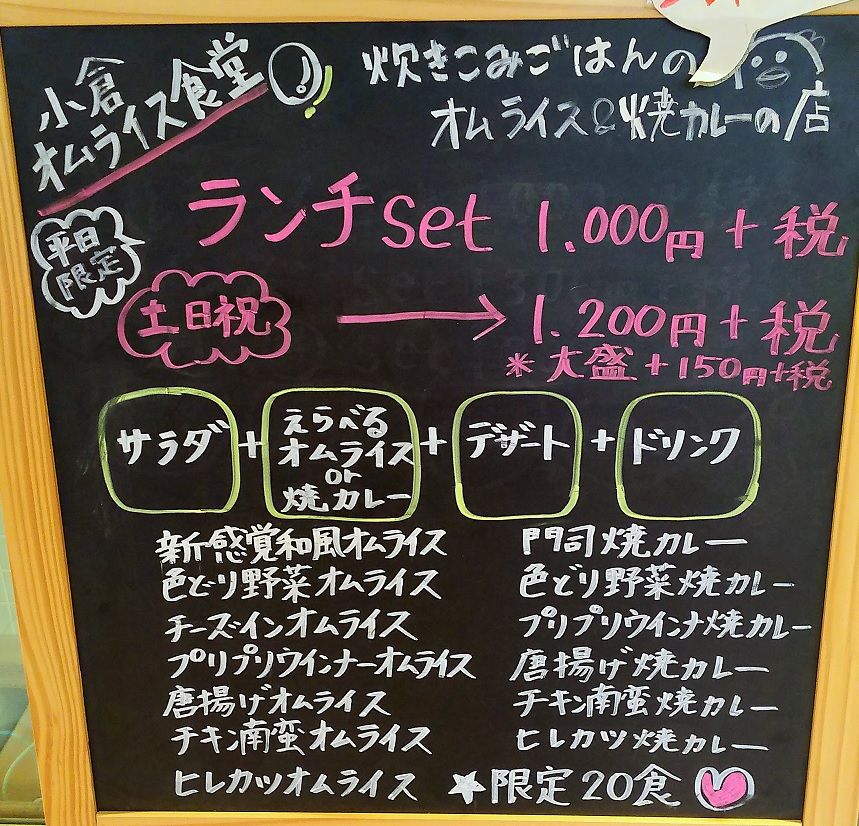 小倉
オムライス食堂
炊きこみごはんの
オムライス&焼カレーの店
ランチset 1.000円+税
平日
限定
土日祝 → 1.200円+税
*大盛+150円+税
サラダ + えらべる
オムライス
or
焼カレー + デザート + ドリンク
新感覚和風オムライス
色どり野菜オムライス
チーズインオムライス
プリプリウインナーオムライス
唐揚げオムライス
チキン南蛮オムライス
ヒレカツオムライス
門司焼カレー
色どり野菜焼カレー
プリプリウインナ焼カレー
唐揚げ焼カレー
チキン南蛮焼カレー
ヒレカツ焼カレー
★限定20食